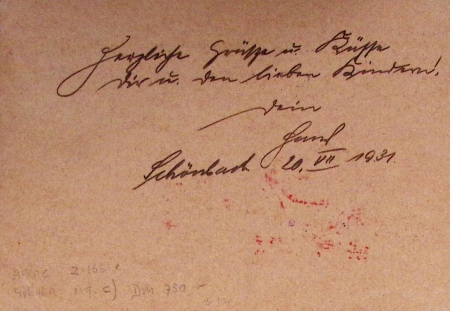 Herzliche Grüsse u. Küsse
dir u. den lieben Kindern!
Dein
Hans
Schönbach 20. VII 1931.
2.166
DM 750 -